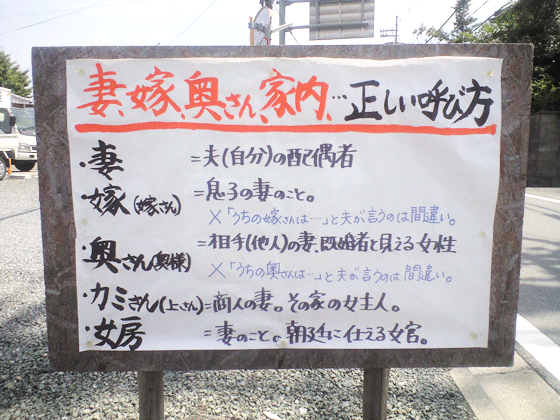 妻、嫁、奥さん、家内、…正しい呼び方
・妻 =夫(自分)の配偶者
・嫁(嫁さん) =息子の妻のこと。
×「うちの嫁さんは……」と夫が言うのは間違い。
・奥さん(奥様) =相手(他人)の妻、既婚者と見える女性
×「うちの奥さんは…」と夫が言うのは間違い。
・カミさん(上さん)=商人の妻。その家の女主人。
・女房 =妻のこと。朝廷に仕える女官。